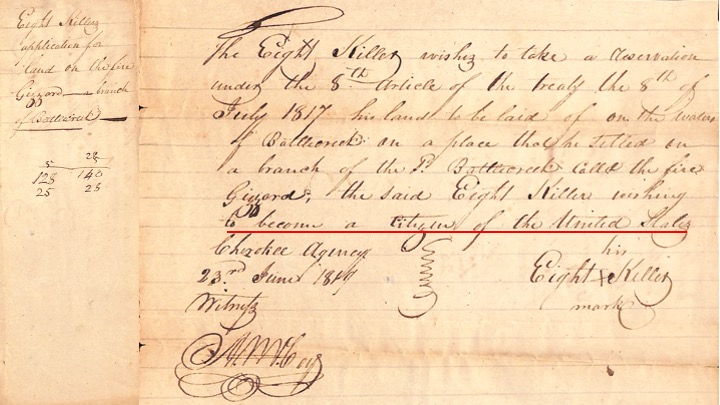 Eight Killer
application for
land on the fire
Gizzard — a branch
of Battlecreek —
5 28
128 140
25 28
The Eight Killer wishes to take a reservation
under the 8th Article of the treaty the 8th of
July 1817 his land to be laid of on the waters
of Battlecreek on a place that he settled on
a branch of the sd. Battlecreek Calld the fire
Gizzard, the said Eight Killer wishing
to become a citizen of the United States
Cherokee Agency
23rd June 1819
Witness
his
Eight X Killer
mark